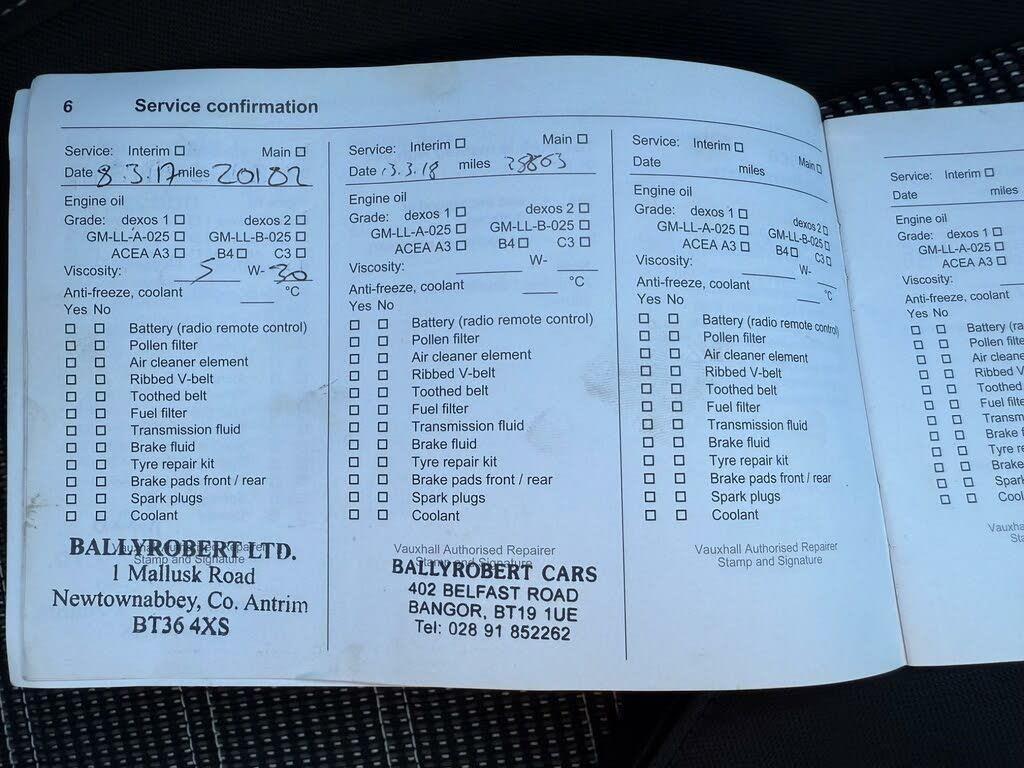 6 Service confirmation
Service: Interim ☐ Main ☐
Date 8.3.17 miles 20182
Engine oil
Grade: dexos 1 ☐ dexos 2 ☐
GM-LL-A-025 ☐ GM-LL-B-025 ☐
ACEA A3 ☐ B4 ☐ C3 ☐
Viscosity: 5 W- 30
Anti-freeze, coolant ___ °C
Yes No
☐ ☐ Battery (radio remote control)
☐ ☐ Pollen filter
☐ ☐ Air cleaner element
☐ ☐ Ribbed V-belt
☐ ☐ Toothed belt
☐ ☐ Fuel filter
☐ ☐ Transmission fluid
☐ ☐ Brake fluid
☐ ☐ Tyre repair kit
☐ ☐ Brake pads front / rear
☐ ☐ Spark plugs
☐ ☐ Coolant
Vauxhall Authorised Repairer
Stamp and Signature
BALLYROBERT LTD.
1 Mallusk Road
Newtownabbey, Co. Antrim
BT36 4XS
Service: Interim ☐ Main ☐
Date 13.3.18 miles
Engine oil
Grade: dexos 1 ☐ dexos 2 ☐
GM-LL-A-025 ☐ GM-LL-B-025 ☐
ACEA A3 ☐ B4 ☐ C3 ☐
Viscosity: ___ W- ___
Anti-freeze, coolant ___ °C
Yes No
☐ ☐ Battery (radio remote control)
☐ ☐ Pollen filter
☐ ☐ Air cleaner element
☐ ☐ Ribbed V-belt
☐ ☐ Toothed belt
☐ ☐ Fuel filter
☐ ☐ Transmission fluid
☐ ☐ Brake fluid
☐ ☐ Tyre repair kit
☐ ☐ Brake pads front / rear
☐ ☐ Spark plugs
☐ ☐ Coolant
Vauxhall Authorised Repairer
Stamp and Signature
BALLYROBERT CARS
402 BELFAST ROAD
BANGOR, BT19 1UE
Tel: 028 91 852262
Service: Interim ☐ Main ☐
Date miles
Engine oil
Grade: dexos 1 ☐ dexos 2 ☐
GM-LL-A-025 ☐ GM-LL-B-025 ☐
ACEA A3 ☐ B4 ☐ C3 ☐
Viscosity: ___ W- ___
Anti-freeze, coolant ___ °C
Yes No
☐ ☐ Battery (radio remote control)
☐ ☐ Pollen filter
☐ ☐ Air cleaner element
☐ ☐ Ribbed V-belt
☐ ☐ Toothed belt
☐ ☐ Fuel filter
☐ ☐ Transmission fluid
☐ ☐ Brake fluid
☐ ☐ Tyre repair kit
☐ ☐ Brake pads front / rear
☐ ☐ Spark plugs
☐ ☐ Coolant
Vauxhall Authorised Repairer
Stamp and Signature
Service: Interim ☐
Date miles
Engine oil
Grade: dexos 1 ☐
GM-LL-A-025 ☐
ACEA A3 ☐
Viscosity:
Anti-freeze, coolant
Yes No
☐ ☐ Battery (ra
☐ ☐ Pollen filte
☐ ☐ Air cleane
☐ ☐ Ribbed V
☐ ☐ Toothed
☐ ☐ Fuel filte
☐ ☐ Transm
☐ ☐ Brake f
☐ ☐ Tyre re
☐ ☐ Brake
☐ ☐ Spark
☐ ☐ Cool
Vauxha